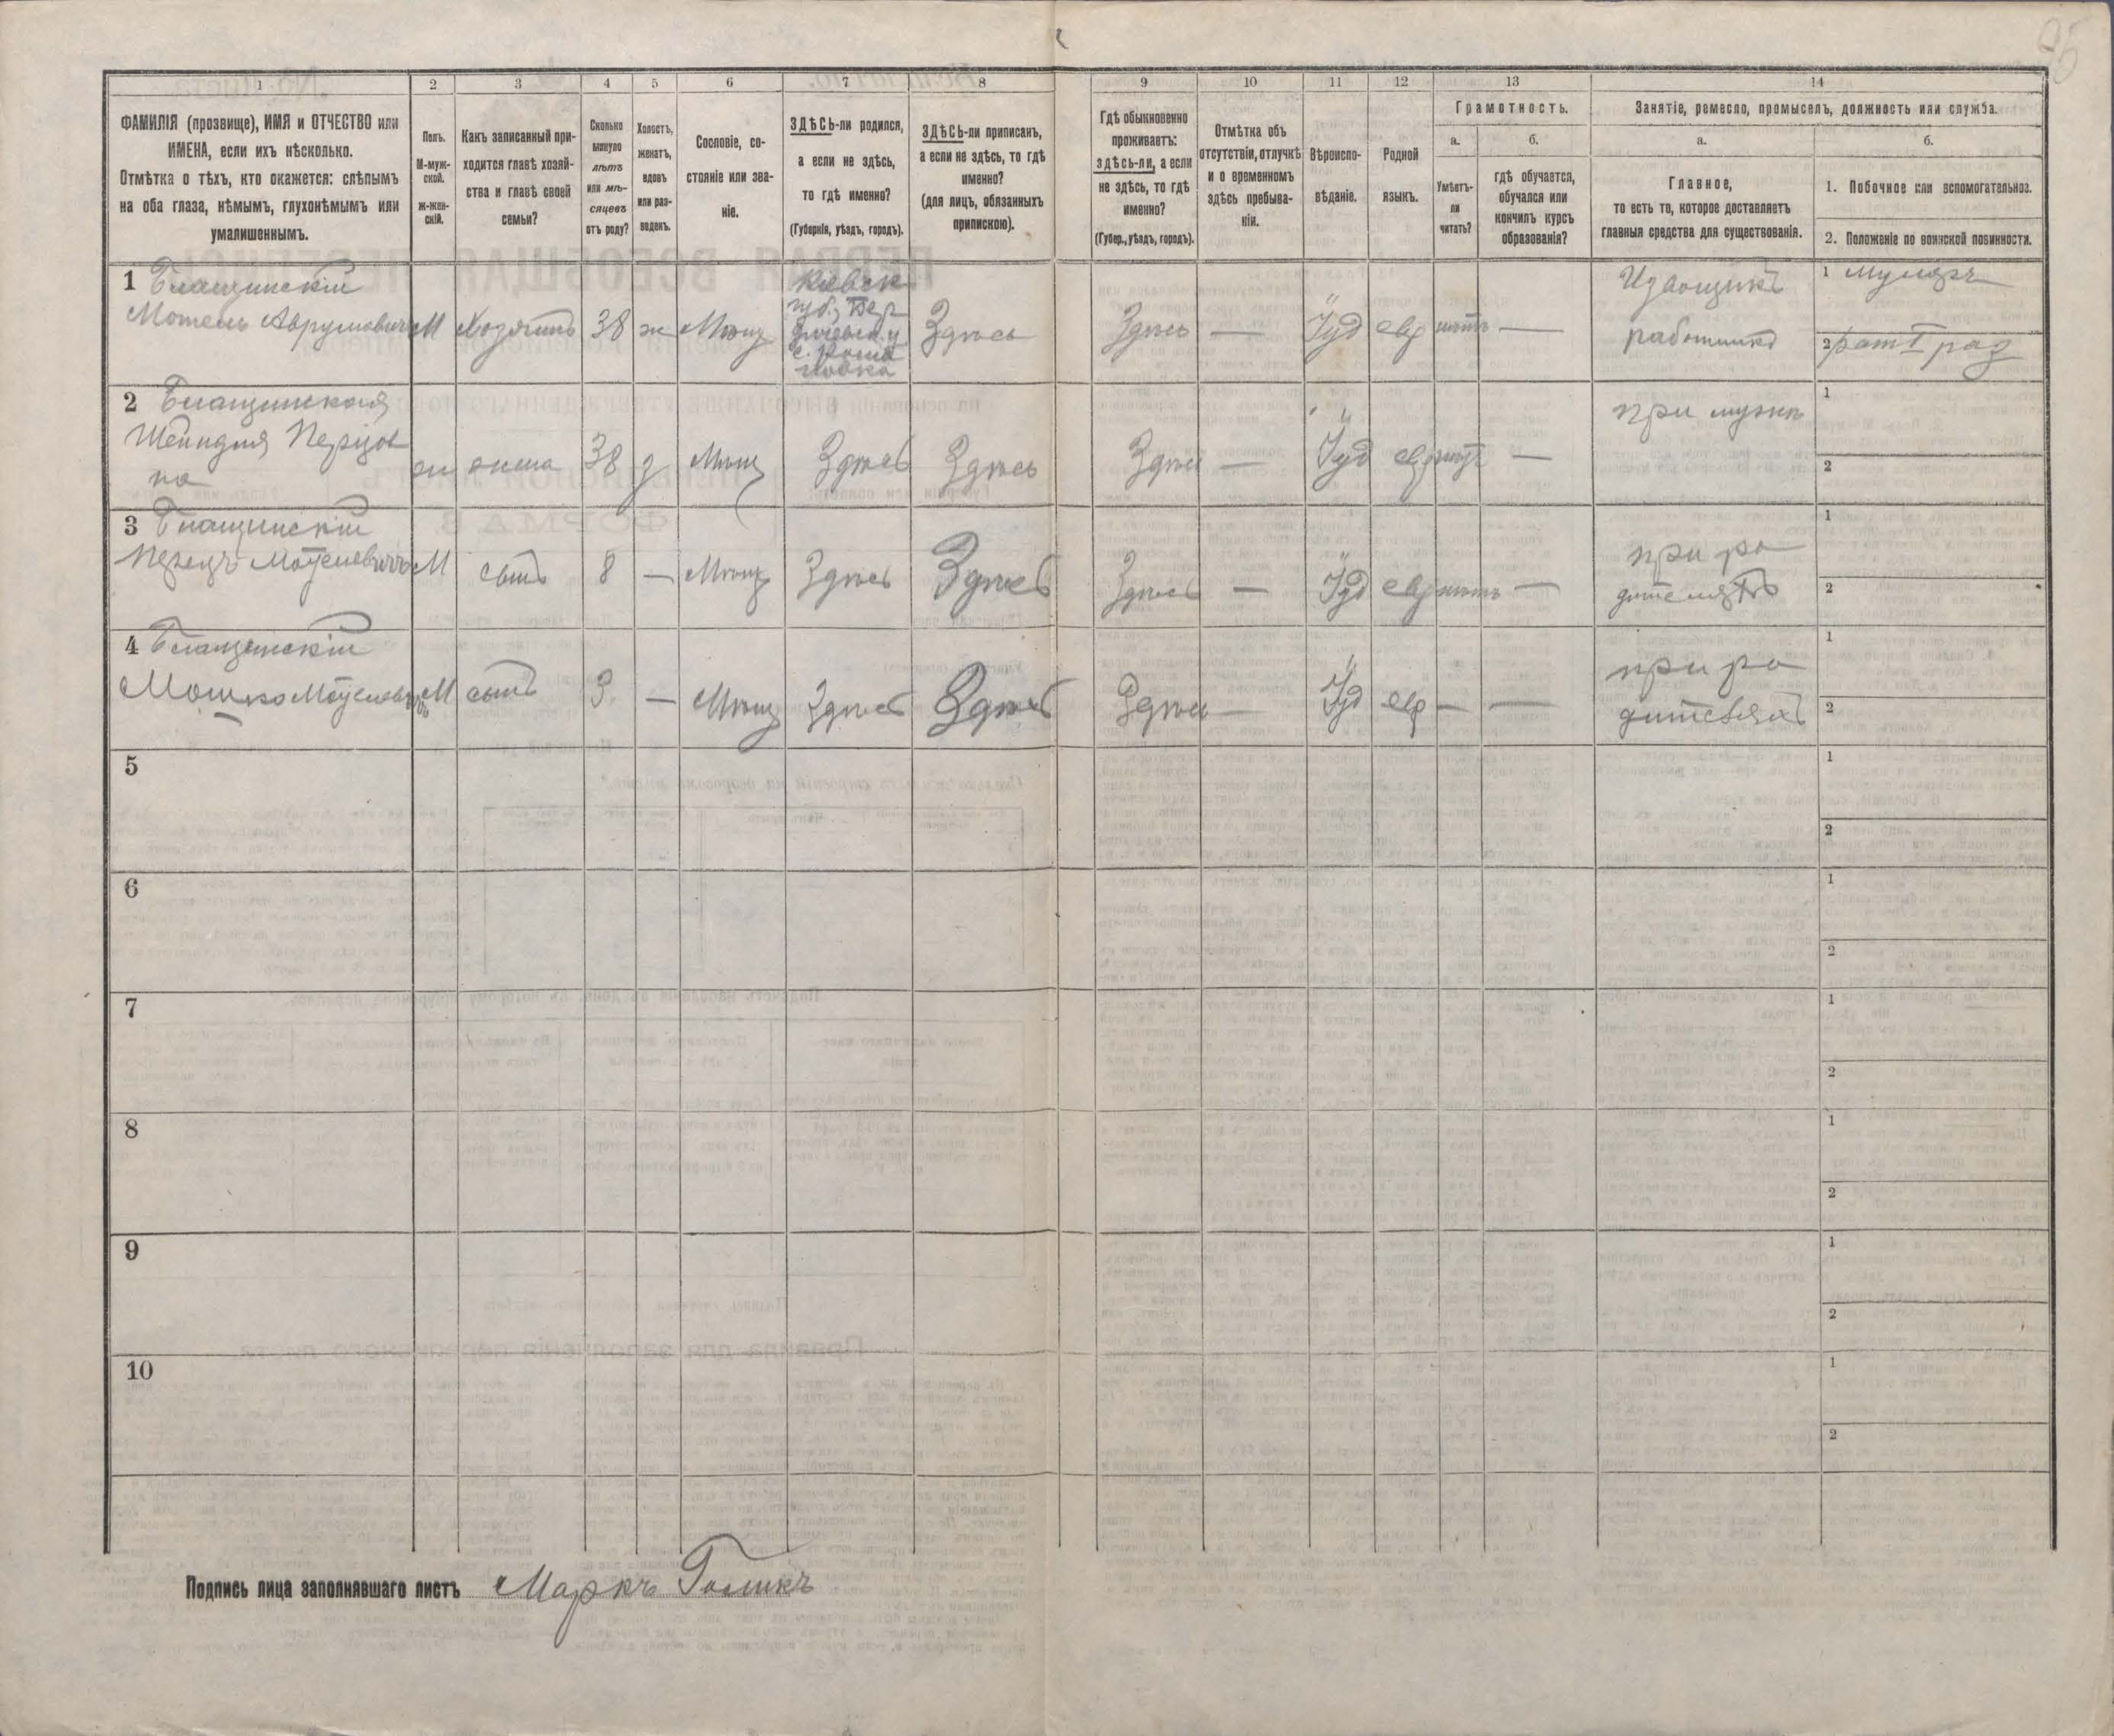 95
1
2
3
4
5
6
7
8
9
10
11
12
13
14
ФАМИЛІЯ (прозвище), ИМЯ и ОТЧЕСТВО или
ИМЕНА, если ихъ нѣсколько.
Отмѣтка о тѣхъ, кто окажется: слѣпымъ
на оба глаза, нѣмымъ, глухонѣмымъ или
умалишеннымъ.
Полъ.
М-муж-
ской.
ж-жен-
скій.
Какъ записанный при-
ходится главѣ хозяй-
ства и главѣ своей
семьи?
Сколько
минуло
лѣтъ
или мѣ-
сяцевъ
отъ роду?
Холостъ,
женатъ,
вдовъ
или раз-
веденъ.
Сословіе, со-
стояніе или зва-
ніе.
ЗДѢСЬ-ли родился,
а если не здѣсь,
то гдѣ именно?
(Губернія, уѣздъ, городъ).
ЗДѢСЬ-ли приписанъ,
а если не здѣсь, то гдѣ
именно?
(для лицъ, обязанныхъ
припискою).
Гдѣ обыкновенно
проживаетъ:
здѣсь-ли, а если
не здѣсь, то гдѣ
именно?
(Губер., уѣздъ, городъ).
Отмѣтка объ
отсутствіи, отлучкѣ
и о временномъ
здѣсь пребыва-
ніи.
Вѣроиспо-
вѣданіе.
Родной
языкъ.
Грамотность.
а.
Умѣетъ-
ли
читать?
б.
гдѣ обучается,
обучался или
кончилъ курсъ
образованія?
Занятіе, ремесло, промыселъ, должность или служба.
а.
Главное,
то есть то, которое доставляетъ
главныя средства для существованія.
б.
1. Побочное или вспомогательное.
2. Положеніе по воинской повинности.
1
Мотель Аврумовичъ
М
Хозяинъ
38
ж
Мѣщ
Кіевск
губ.
Здѣсь
Здѣсь
—
Іуд
евр
—
работникъ
1
2 рат I раз
2
Шейндля Перцов
на
жена
38
з
Мѣщ
Здѣсь
Здѣсь
Здѣсь
—
Іуд
евр
—
при мужѣ
1
2
3
Перецъ Мотелевичъ
М
сынъ
8
—
Мѣщ
Здѣсь
Здѣсь
Здѣсь
—
Іуд
евр
—
при ро
дителяхъ
1
2
4
Мошко Мотелевичъ
М
сынъ
3
—
Мѣщ
Здѣсь
Здѣсь
Здѣсь
—
Іуд
евр
—
—
при ро
дителяхъ
1
2
5
1
2
6
1
2
7
1
2
8
1
2
9
1
2
10
1
2
Подпись лица заполнявшаго листъ Маркъ Голикъ